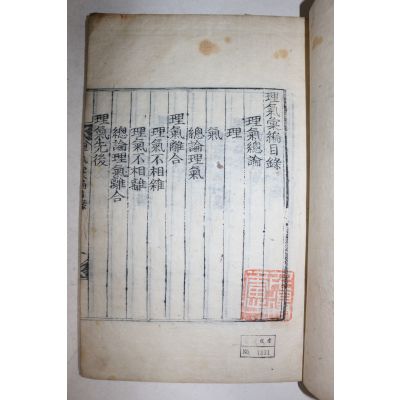 理氣彙編目錄
理氣總論
理
氣
總論理氣
理氣離合
理氣不相雜
理氣不相離
總論理氣離合
理氣先後